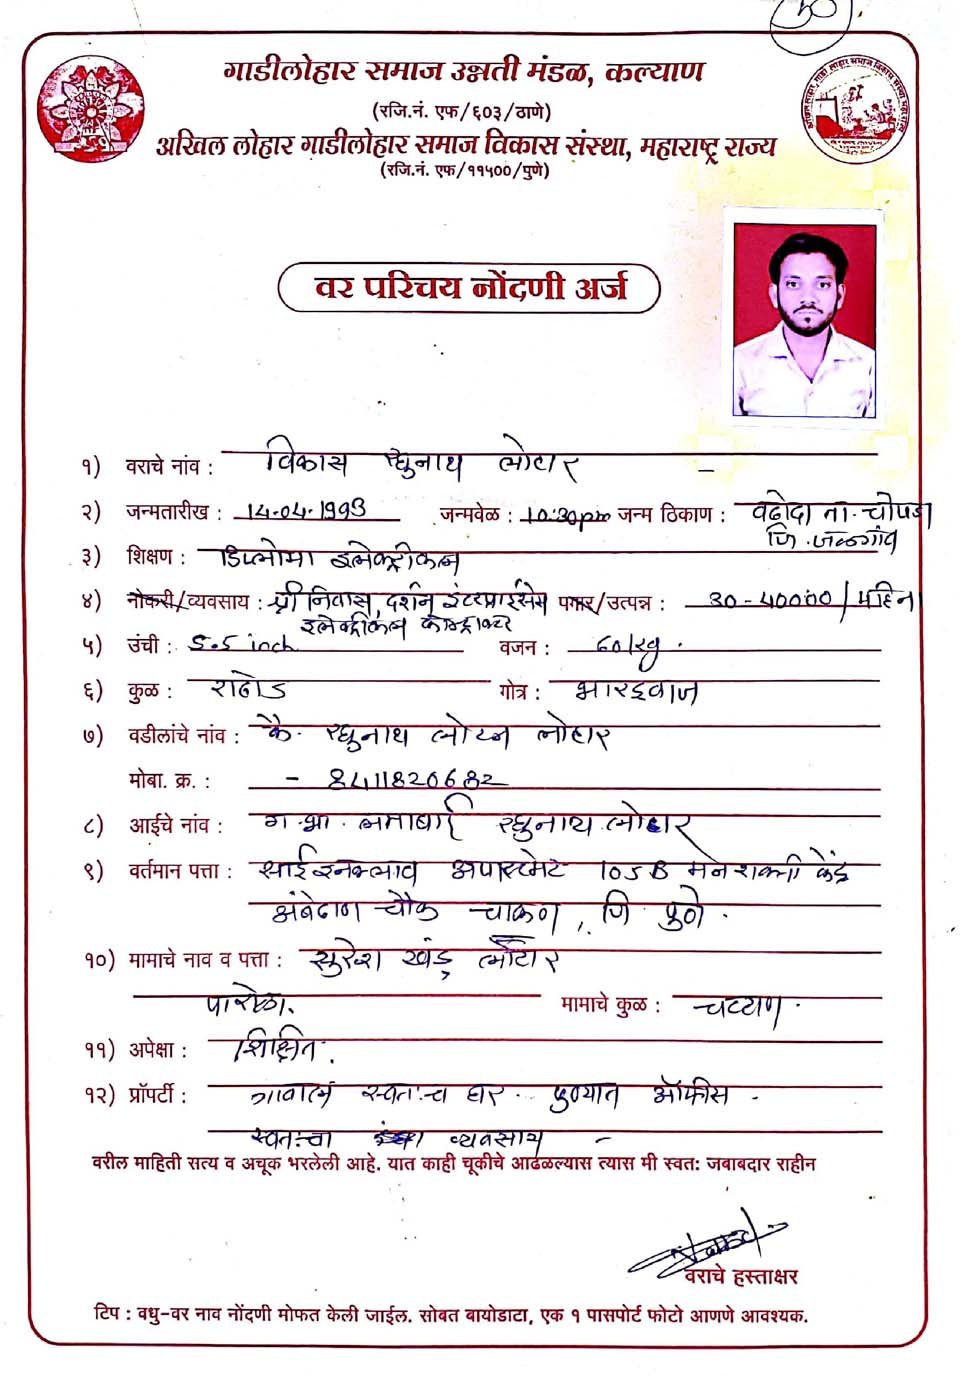 गाडीलोहार समाज उन्नती मंडळ, कल्याण
(रजि.नं. एफ/६०३/ठाणे)
अखिल लोहार गाडीलोहार समाज विकास संस्था, महाराष्ट्र राज्य
(रजि.नं. एफ/११५००/पुणे)
वर परिचय नोंदणी अर्ज
१) वराचे नांव : विकास रघुनाथ लोहार -
२) जन्मतारीख : 14.04.1993 जन्मवेळ : 10:30pm जन्म ठिकाण : वढोदा ता. चोपडा
जि. जळगांव
३) शिक्षण : डिप्लोमा इलेक्ट्रीकल
४) नोकरी/व्यवसाय : श्री निवास, दर्शन इंटरप्राईसेस पगार/उत्पन्न : 30-40000/महिना
इलेक्ट्रीकल कॉन्ट्राक्टर
५) उंची : 5.5 inch वजन : 60/kg.
६) कुळ : राठोड गोत्र : भारद्वाज
७) वडीलांचे नांव : कै. रघुनाथ लोटन लोहार
मोबा. क्र. : - 8411820682
८) आईचे नांव : ग.भा. लताबाई रघुनाथ लोहार
९) वर्तमान पत्ता : साई इनक्लाव अपार्टमेंट 105 B मनशक्ती केंद्र
अंबेठाण चौक चाकण, जि. पुणे.
१०) मामाचे नाव व पत्ता : सुरेश खंडू लोहार
पारोळा. मामाचे कुळ : चव्हाण.
११) अपेक्षा : शिक्षित.
१२) प्रॉपर्टी : गावात स्वतःच घर. पुण्यात ऑफीस -
स्वतःचा व्यवसाय -
वरील माहिती सत्य व अचूक भरलेली आहे. यात काही चूकीचे आढळल्यास त्यास मी स्वत: जबाबदार राहीन
वराचे हस्ताक्षर
टिप : वधु-वर नाव नोंदणी मोफत केली जाईल. सोबत बायोडाटा, एक १ पासपोर्ट फोटो आणणे आवश्यक.